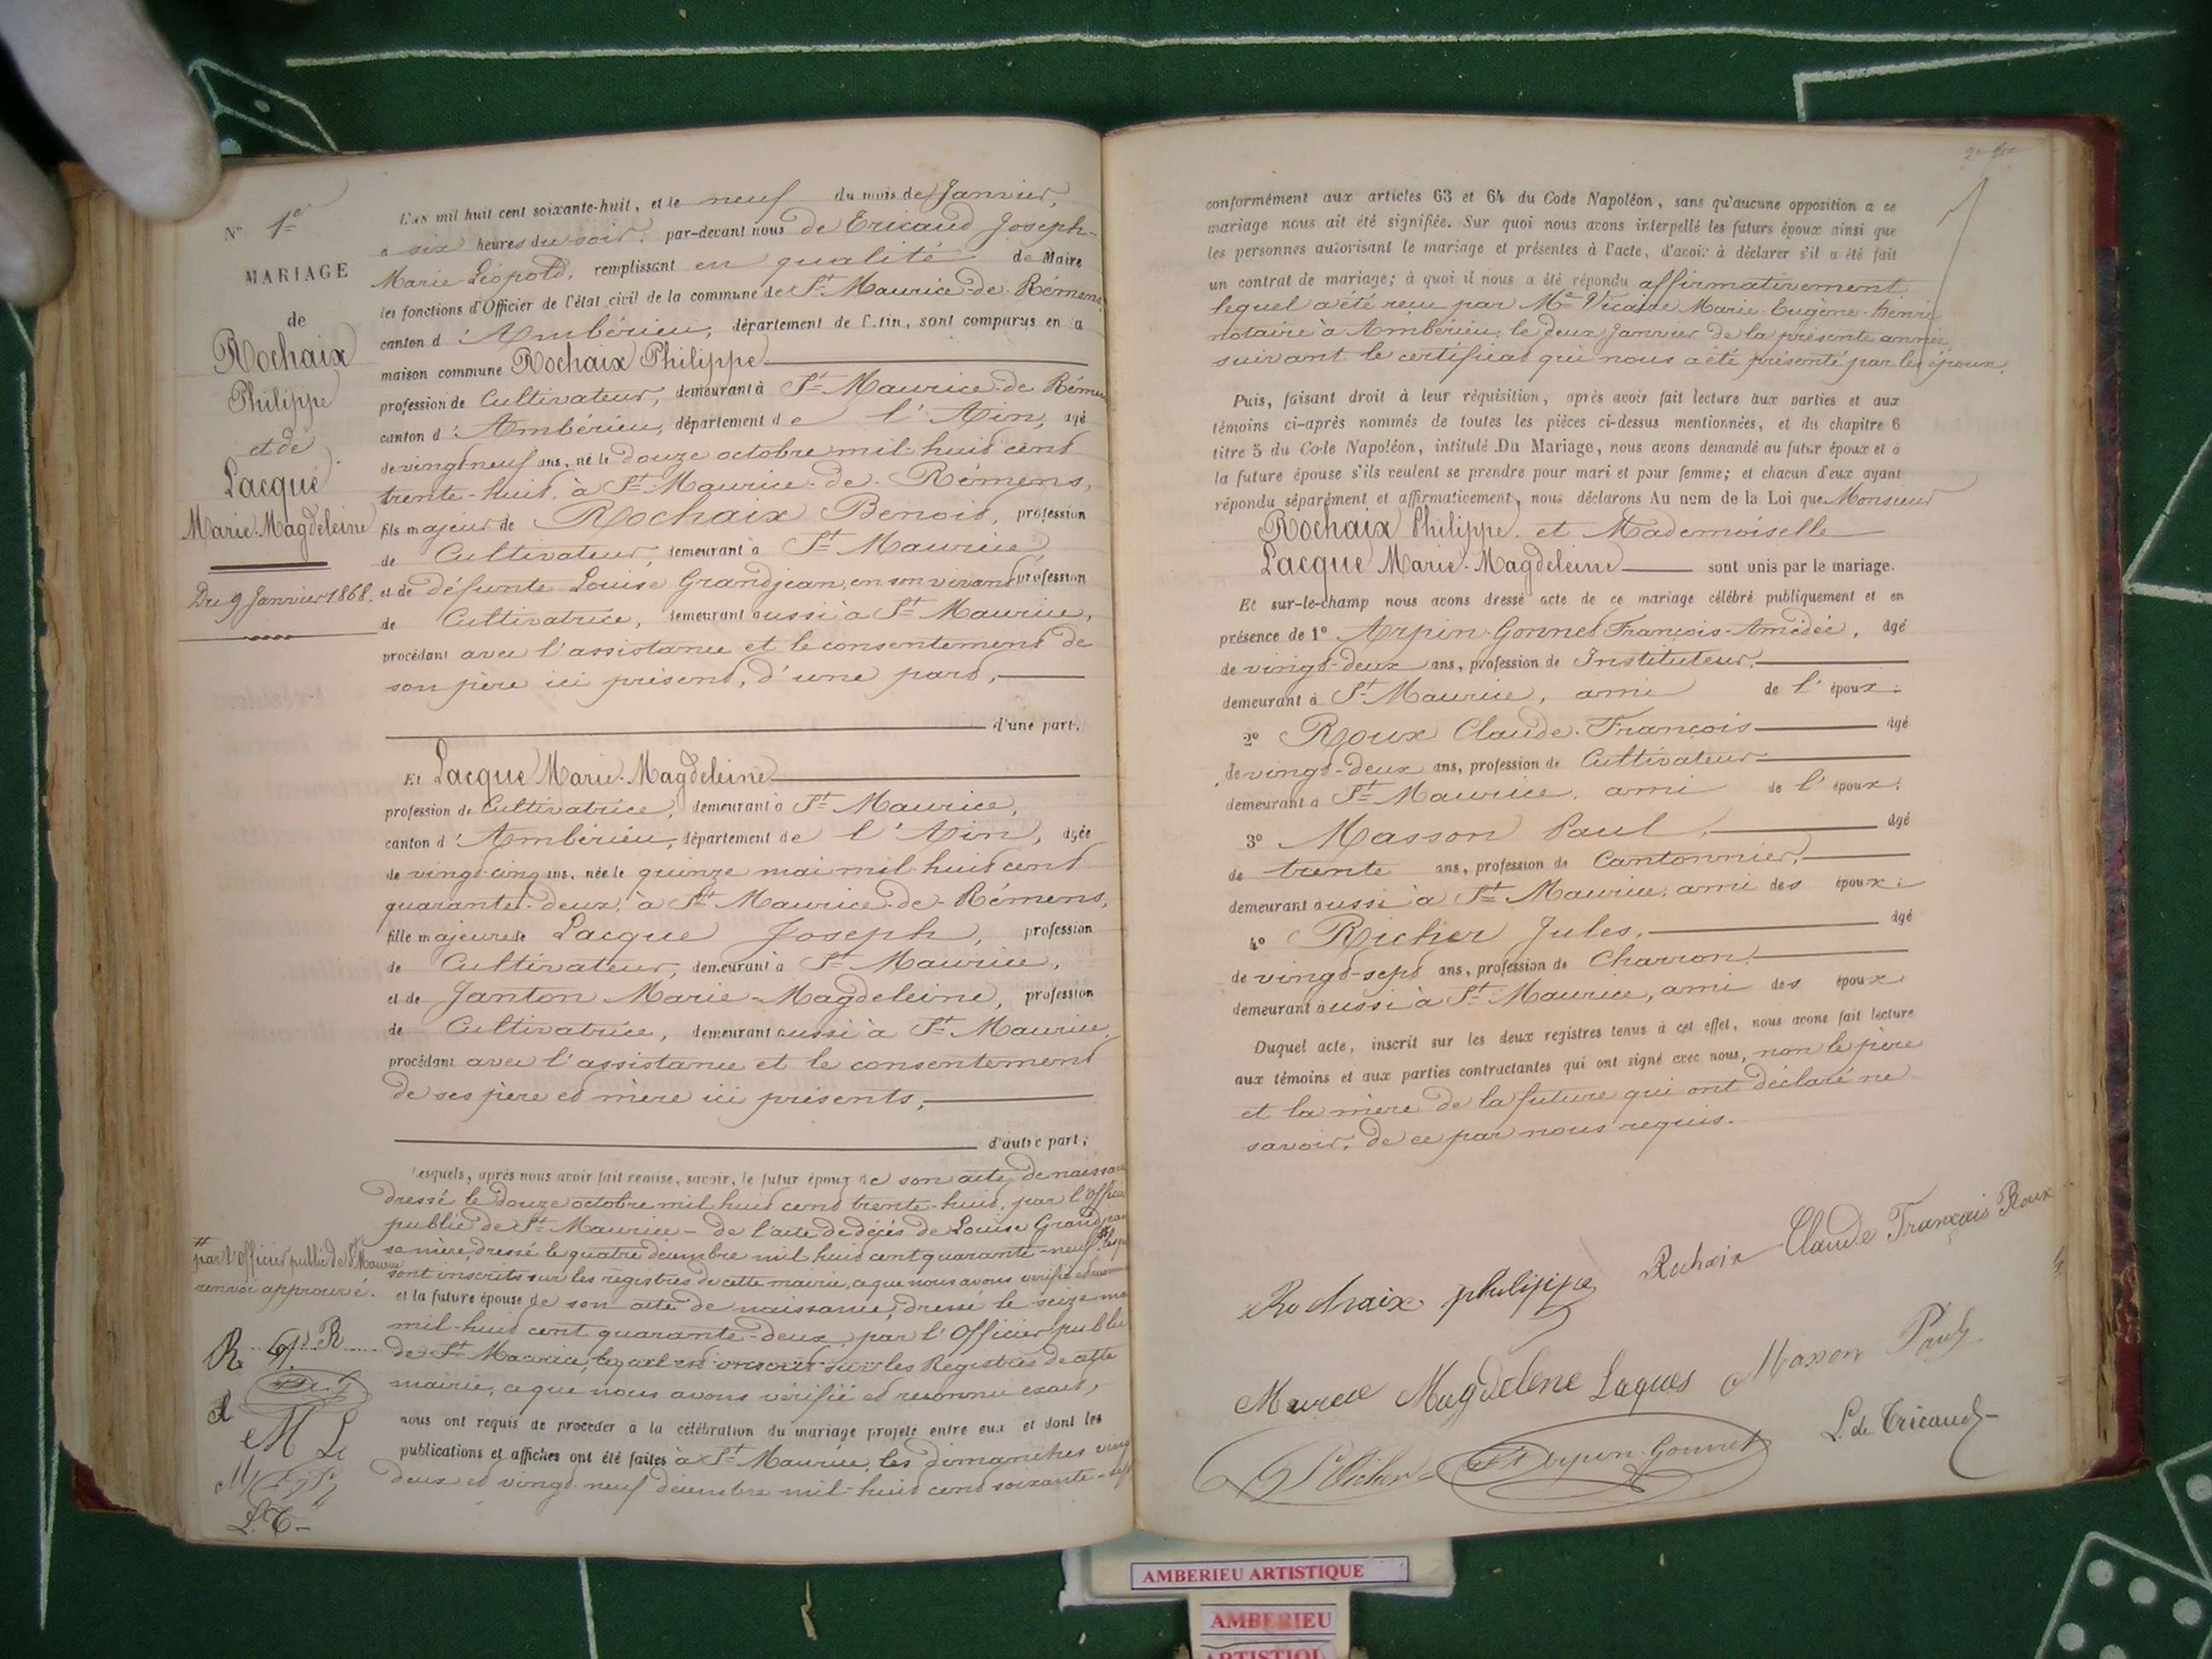 N° 1er
MARIAGE
de
Rochaix
Philippe
et de
Lacque
Marie-Magdeleine
Du 9 Janvier 1868.
L'an mil huit cent soixante-huit, et le neuf du mois de Janvier,
a six heures du soir, par-devant nous de Tricaud Joseph-
Marie Léopold, remplissant en qualité de Maire
les fonctions d'Officier de l'état civil de la commune de St Maurice-de-Rémens
canton d'Ambérieu, département de l'Ain, sont comparus en la
maison commune Rochaix Philippe
profession de Cultivateur, demeurant à St Maurice-de Rémens
canton d'Ambérieu, département de l'Ain, agé
de vingt neuf ans, né le douze octobre mil huit cent
trente-huit, à St Maurice-de-Rémens,
fils majeur de Rochaix Benoit, profession
de Cultivateur, demeurant à St Maurice,
et de défunte Louise Grandjean, en son vivant profession
de Cultivatrice, demeurant aussi à St Maurice,
procédant avec l'assistance et le consentement de
son père ici présent, d'une part,
d'une part.
Et Lacque Marie-Magdeleine
profession de Cultivatrice, demeurant à St Maurice,
canton d'Ambérieu, département de l'Ain, agée
de vingt-cinq ans, née le quinze mai mil huit cent
quarante-deux, à St Maurice-de-Rémens,
fille majeure de Lacque Joseph, profession
de Cultivateur, demeurant à St Maurice,
et de Janton Marie-Magdeleine, profession
de Cultivatrice, demeurant aussi à St Maurice,
procédant avec l'assistance et le consentement
de ses père et mère ici présents,
d'autre part;
Lesquels, après nous avoir fait remise, savoir, le futur époux de son acte de naissance
dressé le douze octobre mil huit cent trente-huit, par l'Officier
public de St Maurice - de l'acte de décès de Louise Grandjean
sa mère, dressé le quatre décembre mil huit cent quarante-neuf #
sont inscrits sur les registres de cette mairie, ce que nous avons vérifié
et la future épouse de son acte de naissance, dressé le seize mai
mil-huit cent quarante-deux, par l'Officier public
de St Maurice, lequel est inscrit sur les Registres de cette
mairie, ce que nous avons vérifié et reconnu exact,
nous ont requis de procéder à la célébration du mariage projeté entre eux et dont les
publications et affiches ont été faites à St Maurice, les dimanches vingt
deux et vingt-neuf décembre mil-huit cent soixante-sept
# par l'Officier public de St Maurice
renvoi approuvé.
R
R
M L
L. T.
conformément aux articles 63 et 64 du Code Napoléon, sans qu'aucune opposition a ce
mariage nous ait été signifiée. Sur quoi nous avons interpellé les futurs époux ainsi que
les personnes autorisant le mariage et présentes à l'acte, d'avoir à déclarer s'il a été fait
un contrat de mariage; à quoi il nous a été répondu affirmativement
lequel a été reçu par Me Vicaire Marie-Eugène-henri
notaire à Ambérieu, le deux Janvier de la présente année,
suivant le certificat qui nous a été présenté par les époux.
Puis, faisant droit à leur réquisition, après avoir fait lecture aux parties et aux
témoins ci-après nommés de toutes les pièces ci-dessus mentionnées, et du chapitre 6
titre 5 du Code Napoléon, intitulé Du Mariage, nous avons demandé au futur époux et à
la future épouse s'ils veulent se prendre pour mari et pour femme; et chacun d'eux ayant
répondu séparément et affirmativement, nous déclarons Au nom de la Loi que Monsieur
Rochaix Philippe. et Mademoiselle
Lacque Marie-Magdeleine sont unis par le mariage.
Et sur-le-champ nous avons dressé acte de ce mariage célébré publiquement et en
présence de 1° Arpin-Gonnet François-Amédée, agé
de vingt-deux ans, profession de Instituteur,
demeurant à St Maurice, ami de l'époux.
2° Roux Claude-François agé
de vingt-deux ans, profession de Cultivateur
demeurant à St Maurice, ami de l'époux.
3° Masson Paul, agé
de trente ans, profession de Cantonnier,
demeurant aussi à St Maurice, ami des époux.
4° Richer Jules, agé
de vingt-sept ans, profession de Charron,
demeurant aussi à St Maurice, ami des époux
Duquel acte, inscrit sur les deux registres tenus à cet effet, nous avons fait lecture
aux témoins et aux parties contractantes qui ont signé avec nous, non le père
et la mère de la future qui ont déclaré ne
savoir, de ce par nous requis.
Rochaix philippe Rochaix Claude Français Roux
Magdelene Laques Masson Paul
Arpin-Gonnet L. de Tricaud
AMBERIEU ARTISTIQUE
AMBERIEU